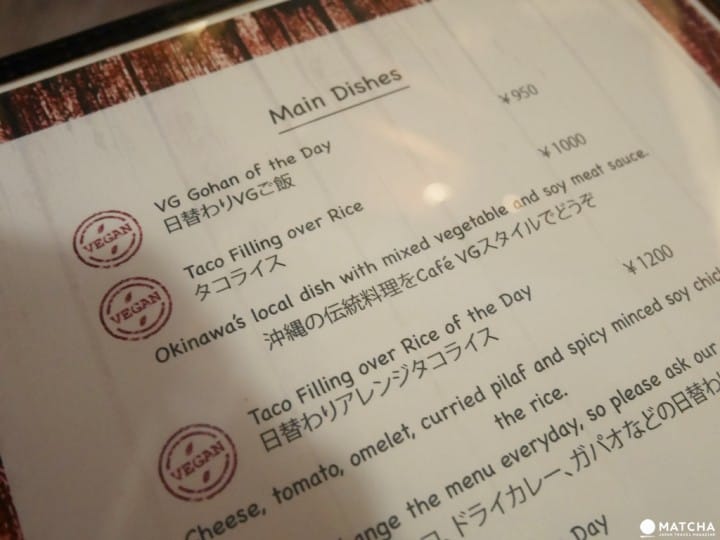 Main Dishes
VG Gohan of the Day ¥950
日替わりVGご飯
VEGAN
Taco Filling over Rice ¥1000
タコライス
VEGAN
Okinawa's local dish with mixed vegetable and soy meat sauce.
沖縄の伝統料理をCafé VGスタイルでどうぞ
Taco Filling over Rice of the Day ¥1200
日替わりアレンジタコライス
VEGAN
Cheese, tomato, omelet, curried pilaf and spicy minced soy
the rice.
the menu everyday, so please ask our
ドライカレー、ガパオなどの日替わ
Day
MATCHA
JAPAN TRAVEL MAGAZINE